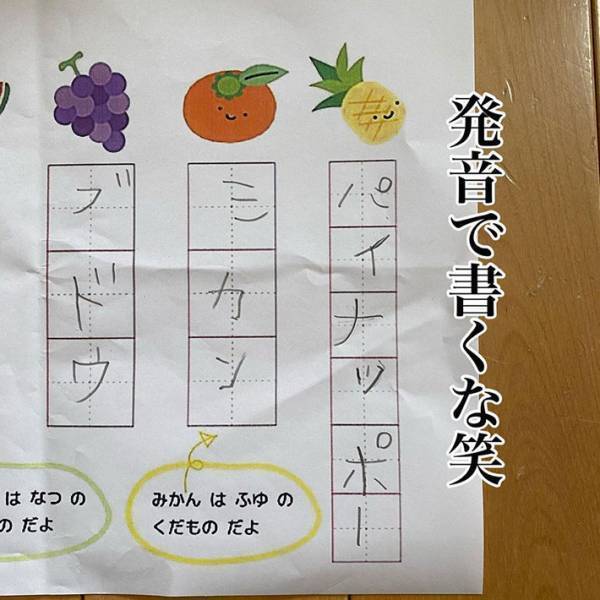 発音で書くな笑
パイナッポー
ミカン
ブドウ
みかん は ふゆ の
くだもの だよ
は なつ の
の だよ